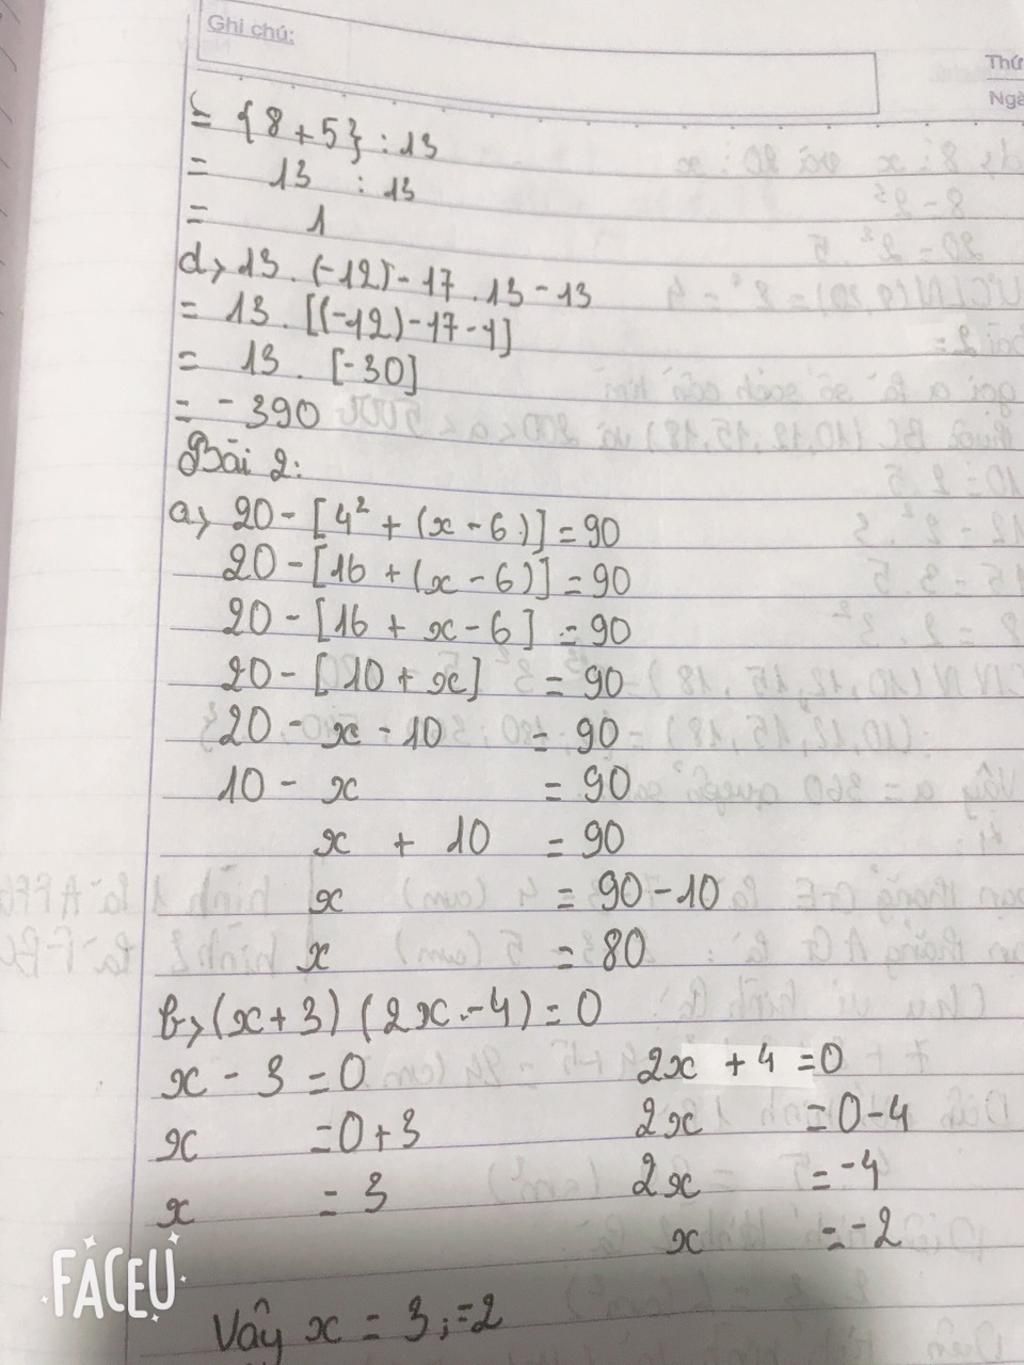 Ghi chú:
Thứ
Ngà
= {8 + 5} : 13
= 13 : 13
= 1
d, 13 . (-12) - 17 . 13 - 13
= 13 . [(-12) - 17 - 1]
= 13 . [-30]
= -390
Bài 2:
a, 20 - [4² + (x - 6)] = 90
20 - [16 + (x - 6)] = 90
20 - [16 + x - 6] = 90
20 - [10 + x] = 90
20 - x - 10 = 90
10 - x = 90
x + 10 = 90
x = 90 - 10
x = 80
b, (x + 3) (2x - 4) = 0
x - 3 = 0 2x + 4 = 0
x = 0 + 3 2x = 0 - 4
x = 3 2x = -4
x = -2
Vậy x = 3; -2
FACEU